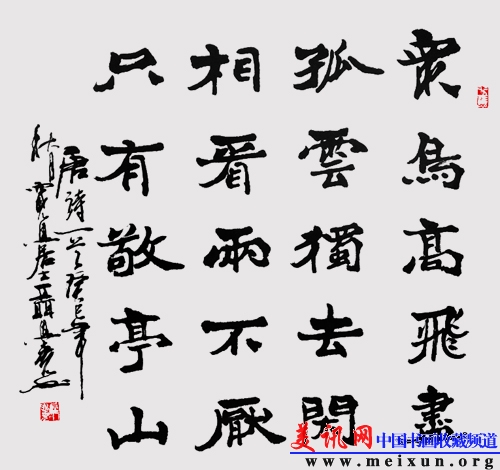 衆鳥高飛盡
孤雲獨去閑
相看兩不厭
只有敬亭山
唐詩一首癸巳年
秋月
美讯网 中国书画收藏频道
www.meixun.org